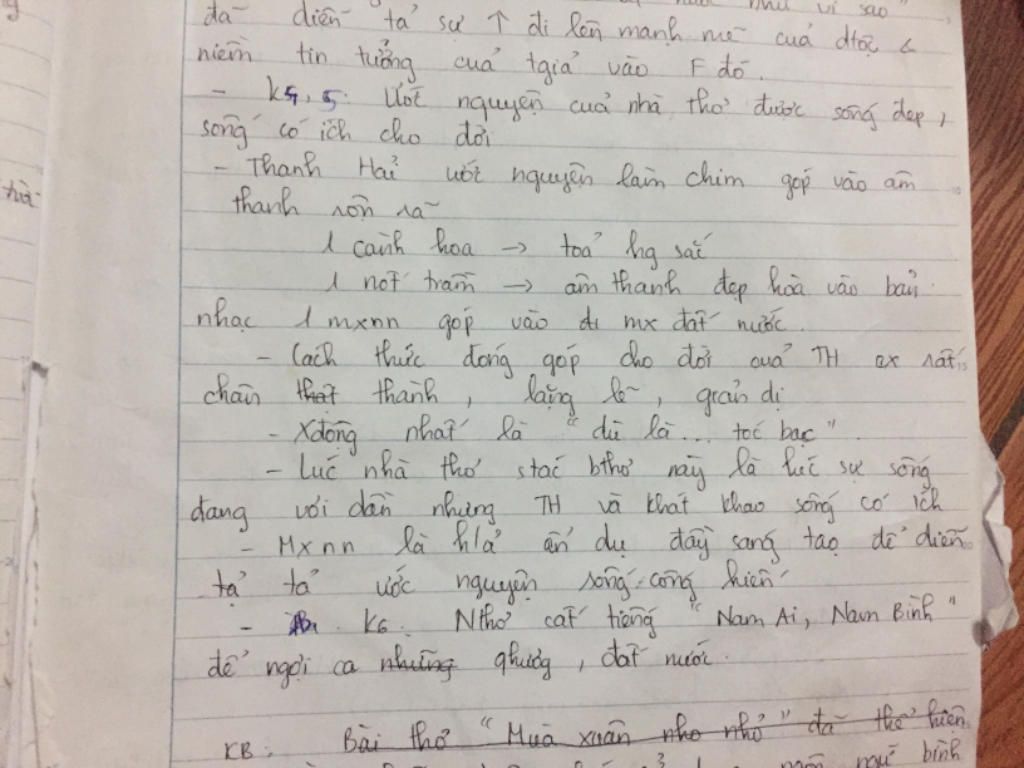 như vì sao"
đã diễn tả sự ↑ đi lên mạnh mẽ của dtộc &
niềm tin tưởng của tgiả vào F đó.
- K4, 5: Ước nguyện của nhà thơ được sống đẹp,
sống có ích cho đời
- Thanh Hải ước nguyện làm chim góp vào âm
thanh rộn rã
1 cành hoa → toả hg sắc
1 nốt trầm → âm thanh đẹp hòa vào bản
nhạc 1 mxnn góp vào đi mx đất nước.
- Cách thức đóng góp cho đời của TH rất
chân that thành, lặng lẽ, giản dị
- Xđộng nhất là "dù là... tóc bạc"
- Lúc nhà thơ stác bthơ này là lúc sự sống
đang vơi dần nhưng TH và khát khao sống có ích
- Mxnn là h/ả ẩn dụ đầy sáng tạo để diễn
tạ tả ước nguyện sống cống hiến
- K6. Nthơ cất tiếng "Nam Ai, Nam Bình"
để ngợi ca những qhương, đất nước.
KB: Bài thơ "Mùa xuân nho nhỏ" đã thể hiện
ngôn ngữ bình